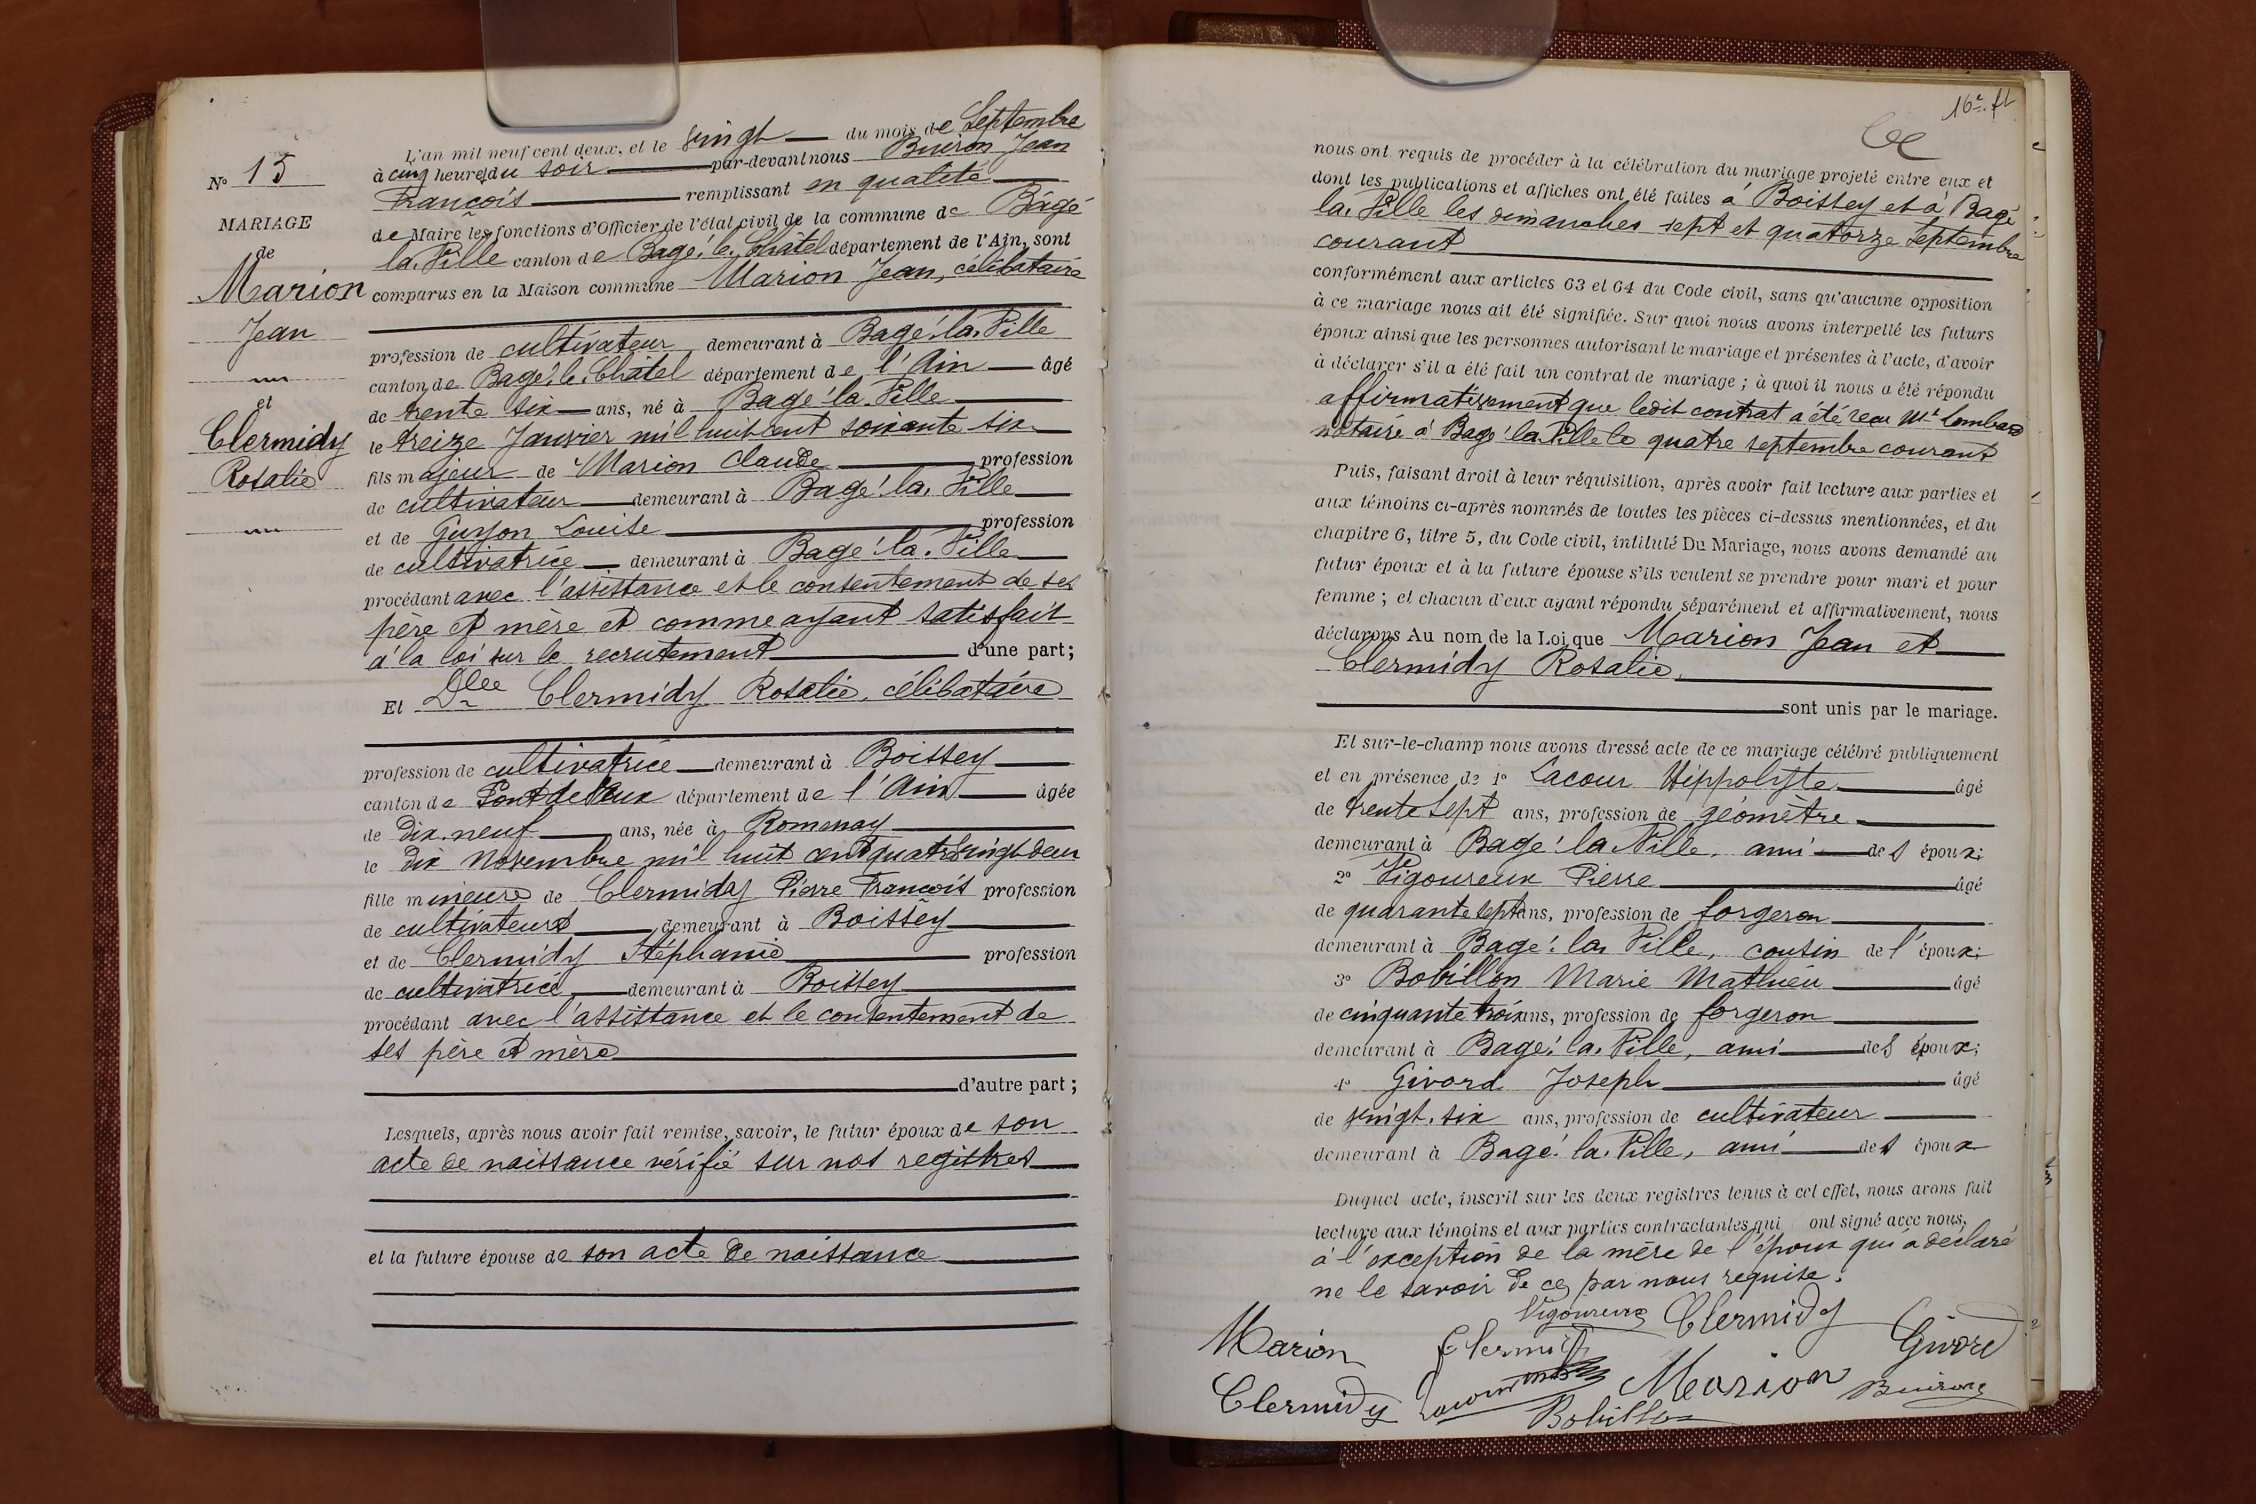 N° 15
MARIAGE
de
Marion
Jean
et
Clermidy
Rosalie
L'an mil neuf cent deux, et le vingt du mois de Septembre
à cinq heures du soir par-devant nous Buiron Jean
François remplissant en qualité
de Maire les fonctions d'Officier de l'état civil de la commune de Bâgé
la Ville canton de Bagé-le-Châtel département de l'Ain, sont
comparus en la Maison commune Marion Jean, célibataire
profession de cultivateur demeurant à Bagé-la-Ville
canton de Bagé-le-Châtel département de l'Ain âgé
de trente six ans, né à Bagé-la-Ville
le treize Janvier mil huit cent soixante six
fils majeur de Marion Claude profession
de cultivateur demeurant à Bagé-la-Ville
et de Guyon Louise profession
de cultivatrice demeurant à Bagé-la-Ville
procédant avec l'assistance et le consentement de ses
père et mère et comme ayant satisfait
à la loi sur le recrutement d'une part;
Et Dlle Clermidy Rosalie, célibataire
profession de cultivatrice demeurant à Boissey
canton de Pont de Vaux département de l'Ain âgée
de dix-neuf ans, née à Romenay
le dix Novembre mil huit cent quatre vingt deux
fille mineure de Clermidy Pierre François profession
de cultivateur demeurant à Boissey
et de Clermidy Stéphanie profession
de cultivatrice demeurant à Boissey
procédant avec l'assistance et le consentement de
ses père et mère
d'autre part;
Lesquels, après nous avoir fait remise, savoir, le futur époux de son
acte de naissance vérifié sur nos registres
et la future épouse de son acte de naissance
16e ft
nous ont requis de procéder à la célébration du mariage projeté entre eux et
dont les publications et affiches ont été faites à Boissey et à Bagé
la Ville les dimanches sept et quatorze Septembre
courant
conformément aux articles 63 et 64 du Code civil, sans qu'aucune opposition
à ce mariage nous ait été signifiée. Sur quoi nous avons interpellé les futurs
époux ainsi que les personnes autorisant le mariage et présentes à l'acte, d'avoir
à déclarer s'il a été fait un contrat de mariage; à quoi il nous a été répondu
affirmativement que ledit contrat a été reçu Me Lombard
notaire à Bagé-la-Ville le quatre septembre courant
Puis, faisant droit à leur réquisition, après avoir fait lecture aux parties et
aux témoins ci-après nommés de toutes les pièces ci-dessus mentionnées, et du
chapitre 6, titre 5, du Code civil, intitulé Du Mariage, nous avons demandé au
futur époux et à la future épouse s'ils veulent se prendre pour mari et pour
femme; et chacun d'eux ayant répondu séparément et affirmativement, nous
déclarons Au nom de la Loi que Marion Jean et
Clermidy Rosalie
sont unis par le mariage.
Et sur-le-champ nous avons dressé acte de ce mariage célébré publiquement
et en présence de 1° Lacour Hippolyte âgé
de trente sept ans, profession de géomètre
demeurant à Bagé-la-Ville, ami des époux;
2° Vigoureux Pierre âgé
de quarante sept ans, profession de forgeron
demeurant à Bagé-la-Ville, cousin de l'époux;
3° Bobillon Marie Mathieu âgé
de cinquante trois ans, profession de forgeron
demeurant à Bagé-la-Ville, ami des époux;
4° Givord Joseph âgé
de vingt-six ans, profession de cultivateur
demeurant à Bagé-la-Ville, ami des époux
Duquel acte, inscrit sur les deux registres tenus à cet effet, nous avons fait
lecture aux témoins et aux parties contractantes qui ont signé avec nous,
à l'exception de la mère de l'époux qui a déclaré
ne le savoir de ce par nous requise.
Vigoureux Clermidy
Marion Clermidy Givord
Clermidy Lacour Marion Buiron
Bobillon